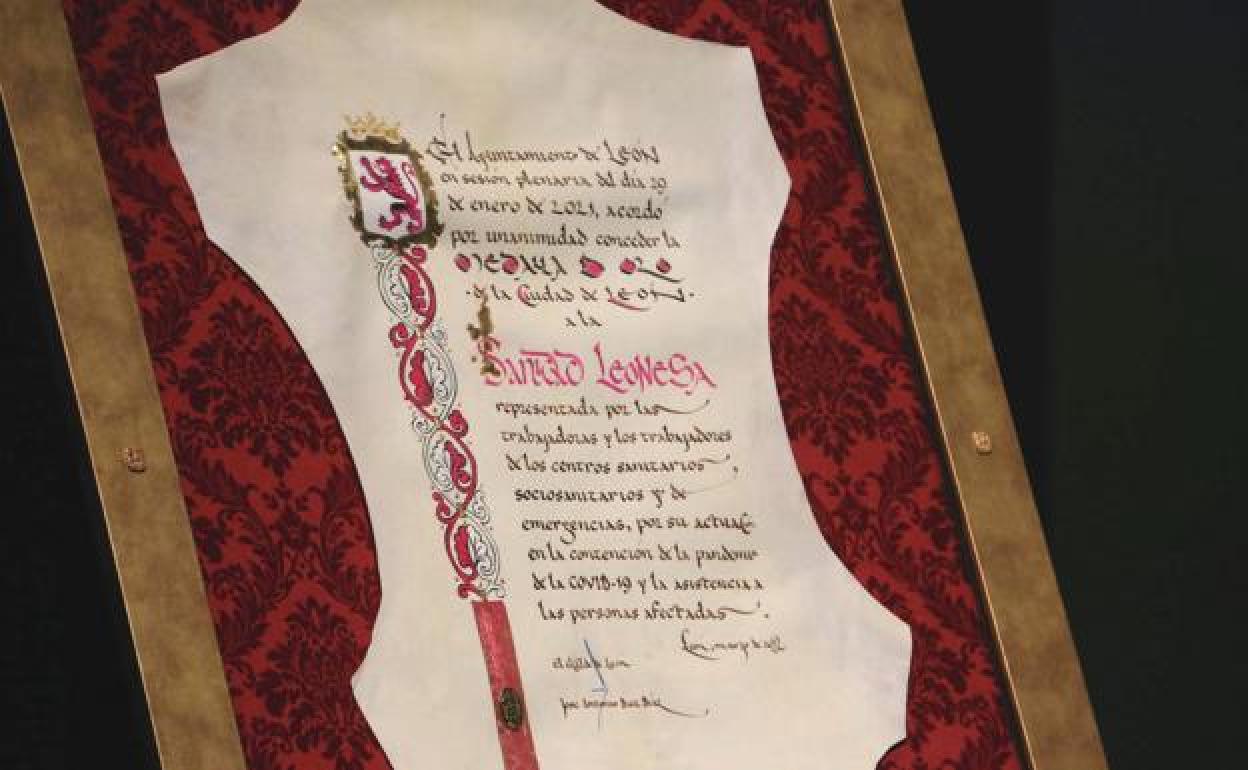 El Ayuntamiento de LEÓN
en sesión plenaria del día 29
de enero de 2021, acordó
por unanimidad conceder la
MEDALLA DE ORO
de la Ciudad de LEON
a la
SANIDAD LEONESA
representada por las
trabajadoras y los trabajadores
de los centros sanitarios,
sociosanitarios y de
emergencias, por su actuac.
en la contención de la pandemia
de la COVID-19 y la asistencia a
las personas afectadas.
León, de
el alcalde de León
José Antonio Diez Díaz